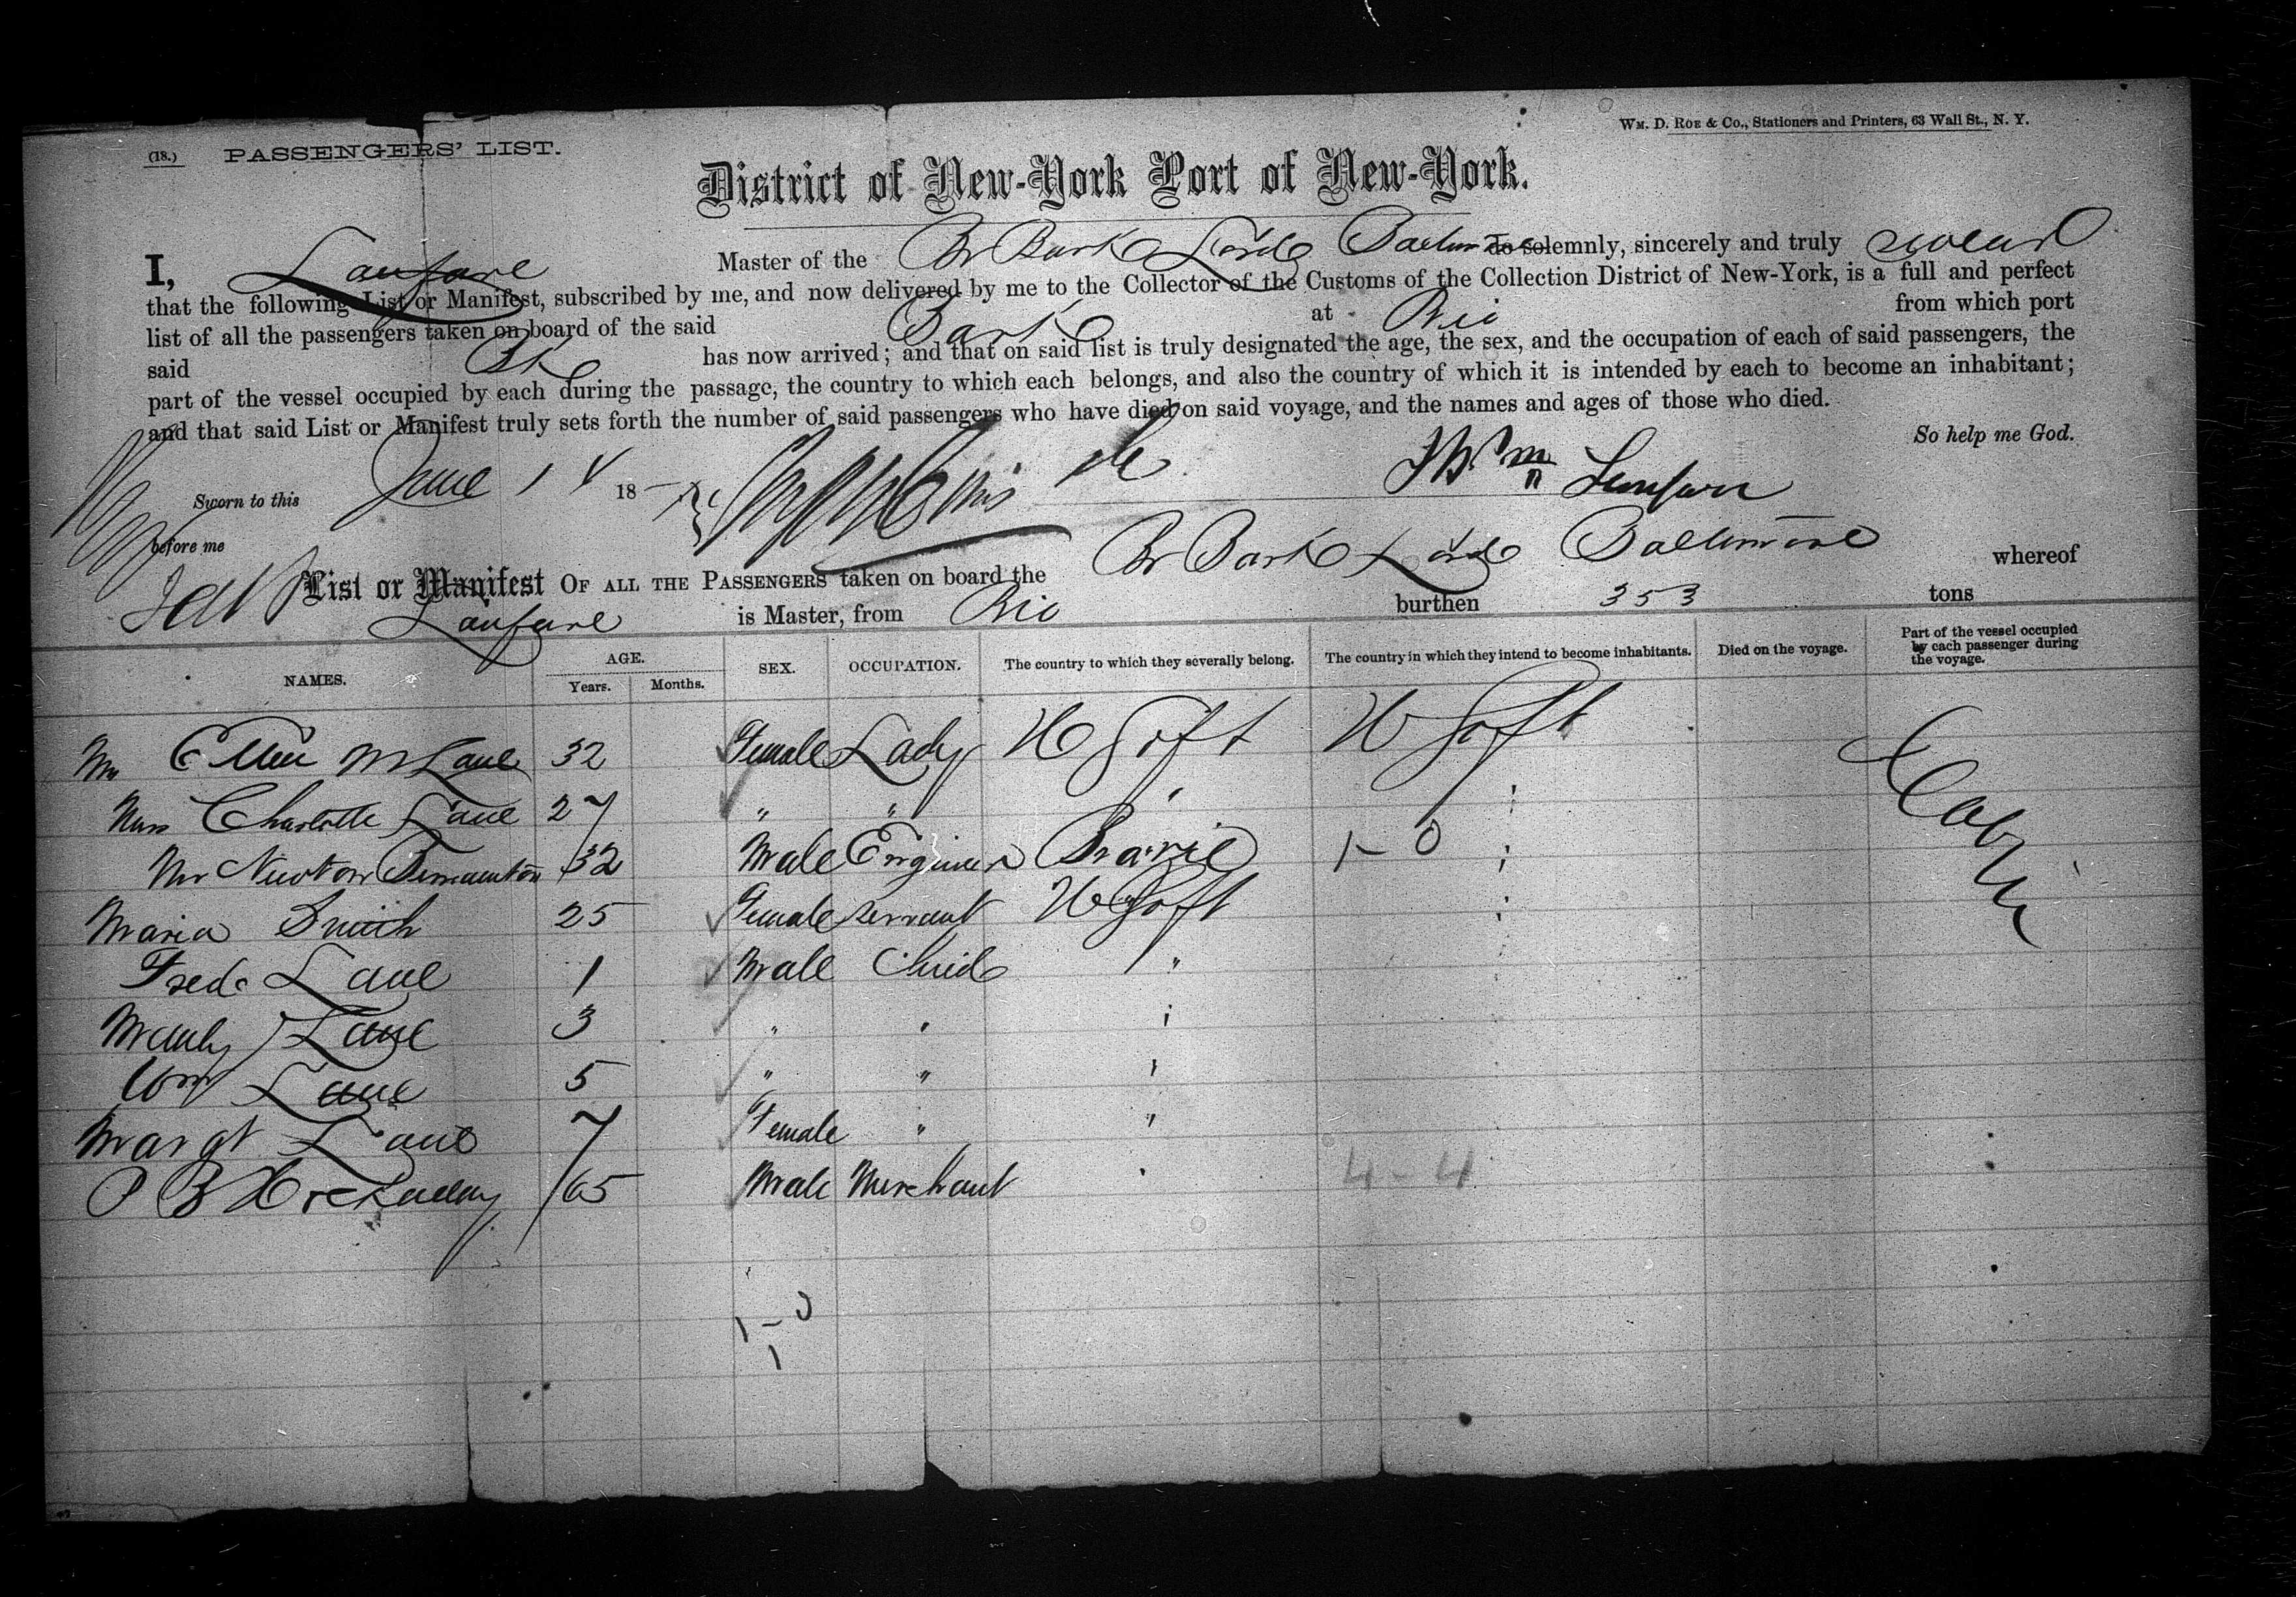 Wm. D. Roe & Co., Stationers and Printers, 63 Wall St., N. Y.
(18.) PASSENGERS' LIST.
District of New-York Port of New-York.
I, Lanfare Master of the Br Bark Lord Baltimore do solemnly, sincerely and truly swear
that the following List or Manifest, subscribed by me, and now delivered by me to the Collector of the Customs of the Collection District of New-York, is a full and perfect
list of all the passengers taken on board of the said Bark at Rio from which port
said Bk has now arrived; and that on said list is truly designated the age, the sex, and the occupation of each of said passengers, the
part of the vessel occupied by each during the passage, the country to which each belongs, and also the country of which it is intended by each to become an inhabitant;
and that said List or Manifest truly sets forth the number of said passengers who have died on said voyage, and the names and ages of those who died.
So help me God.
Sworn to this June 14 18
before me
List or Manifest OF ALL THE PASSENGERS taken on board the Br Bark Lord Baltimore whereof
Lanfare is Master, from Rio burthen 353 tons
NAMES. AGE. Years. Months. SEX. OCCUPATION. The country to which they severally belong. The country in which they intend to become inhabitants. Died on the voyage. Part of the vessel occupied by each passenger during the voyage.
Ellen M Lane 32 Female Lady Cabin
Charlotte Lane 27 " "
Mr Newton 32 Male Engineer 1-0
Maria Smith 25 Female Servant
Fred Lane 1 Male Child "
Lane 3 " "
Wm Lane 5 " "
Margt Lane 7 Female " "
P B Hockaday 65 Male Merchant 4-4
1-0
1